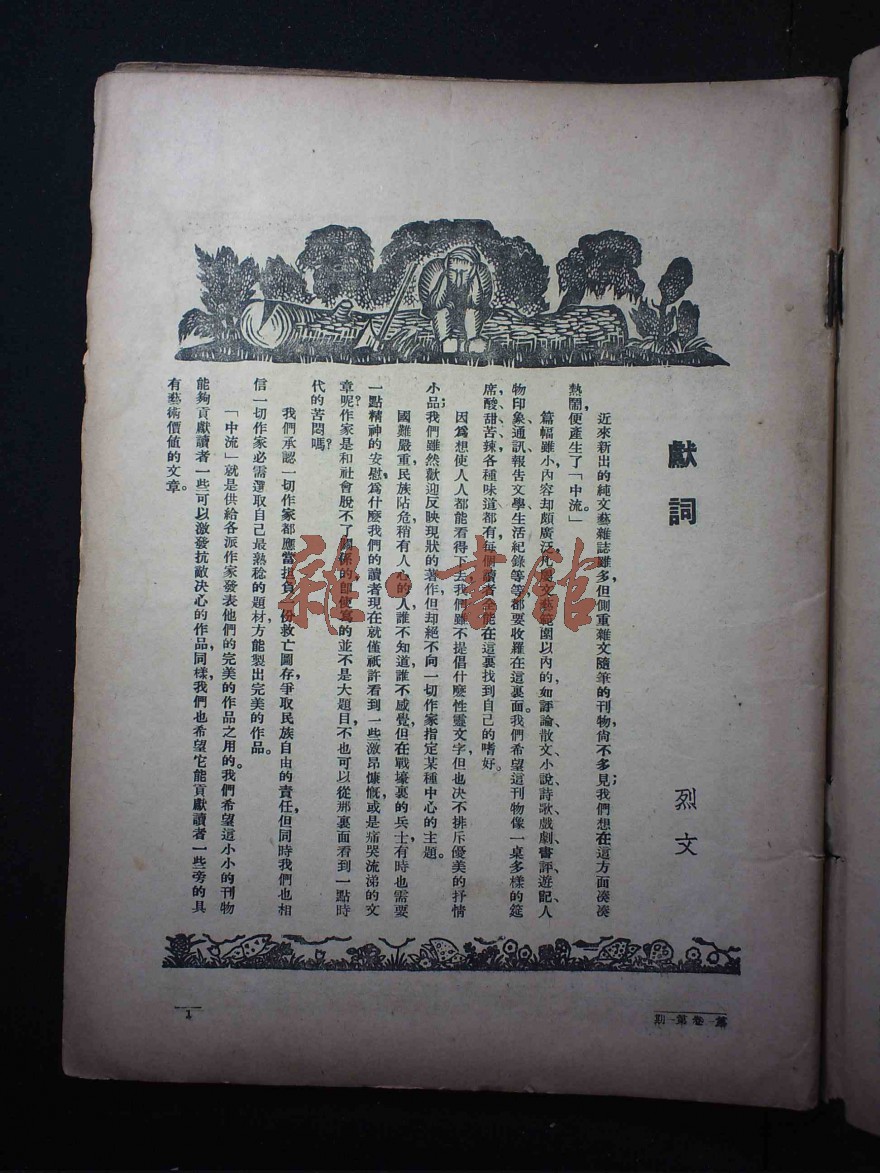 獻詞
烈文
近來新出的純文藝雜誌雖多，但側重雜文隨筆的刊物，尙不多見；我們想在這方面湊湊
熱鬧，便產生了「中流」。
篇幅雖小，內容却頗廣泛，凡屬文藝範圍以內的，如評論、散文、小說、詩歌、戲劇、書評、遊記、人
物印象、通訊、報吿文學、生活紀錄等等，都要收羅在這裏面。我們希望這刊物像一桌多樣的筵
席，酸、甜、苦、辣，各種味道都有，每個讀者全能在這裏找到自己的嗜好。
因爲想使人人都能看得下去，我們雖不提倡什麼性靈文字，但也决不排斥優美的抒情
小品；我們雖然歡迎反映現狀的著作，但却絕不向一切作家指定某種中心的主題。
國難嚴重，民族阽危，稍有人心的人，誰不知道，誰不感覺，但在戰壕裏的兵士有時也需要
一點精神的安慰，爲什麼我們的讀者現在就僅祇許看到一些激昂慷慨，或是痛哭流涕的文
章呢？作家是和社會脫不了關係的，卽使寫的並不是大題目，不也可以從那裏面看到一點時
代的苦悶嗎？
我們承認一切作家都應當担負一份救亡圖存，爭取民族自由的責任，但同時我們也相
信一切作家必需選取自己最熟稔的題材，方能製出完美的作品。
「中流」就是供給各派作家發表他們的完美的作品之用的。我們希望這小小的刊物
能夠貢獻讀者一些可以激發抗敵决心的作品，同樣，我們也希望它能貢獻讀者一些旁的具
有藝術價値的文章。
第一卷第一期
1
雜·書館